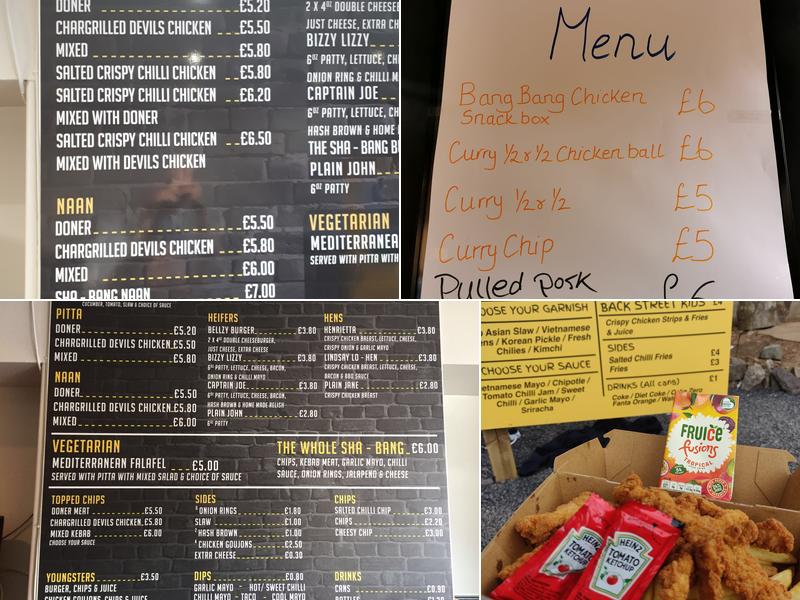 DONER £5.20
CHARGRILLED DEVILS CHICKEN £5.50
MIXED £5.80
SALTED CRISPY CHILLI CHICKEN £5.80
SALTED CRISPY CHILLI CHICKEN £6.20
MIXED WITH DONER
SALTED CRISPY CHILLI CHICKEN £6.50
MIXED WITH DEVILS CHICKEN
NAAN
DONER £5.50
CHARGRILLED DEVILS CHICKEN £5.80
MIXED £6.00
SHA-BANG NAAN £7.00
2 X 4oz DOUBLE CHEESEB
JUST CHEESE, EXTRA CH
BIZZY LIZZY
6oz PATTY, LETTUCE, CH
ONION RING & CHILLI M
CAPTAIN JOE
6oz PATTY, LETTUCE, CH
HASH BROWN & HOME
THE SHA-BANG B
PLAIN JOHN
6oz PATTY
VEGETARIAN
MEDITERRANEA
SERVED WITH PITTA WITH
Menu
Bang Bang Chicken £6
Snack box
Curry 1/2 r 1/2 Chicken ball £6
Curry 1/2 r 1/2 £5
Curry Chip £5
Pulled Pork £6
CUCUMBER, TOMATO, SLAW & CHOICE OF SAUCE
PITTA
DONER £5.20
CHARGRILLED DEVILS CHICKEN £5.50
MIXED £5.80
NAAN
DONER £5.50
CHARGRILLED DEVILS CHICKEN £5.80
MIXED £6.00
HEIFERS
BELLZY BURGER £3.80
2 X 4oz DOUBLE CHEESEBURGER,
JUST CHEESE, EXTRA CHEESE
BIZZY LIZZY £3.80
6oz PATTY, LETTUCE, CHEESE, BACON,
ONION RING & CHILLI MAYO
CAPTAIN JOE £3.80
6oz PATTY, LETTUCE, CHEESE, BACON,
HASH BROWN & HOME MADE RELISH
PLAIN JOHN £2.80
6oz PATTY
HENS
HENRIETTA £3.80
CRISPY CHICKEN BREAST, LETTUCE, CHEESE,
CRISPY ONION & GARLIC MAYO
LINDSAY LO - HEN £3.80
CRISPY CHICKEN BREAST, LETTUCE, CHEESE,
BACON & BBQ SAUCE
PLAIN JANE £2.80
CRISPY CHICKEN BREAST
VEGETARIAN
MEDITERRANEAN FALAFEL £5.00
SERVED WITH PITTA WITH MIXED SALAD & CHOICE OF SAUCE
THE WHOLE SHA - BANG £6.00
CHIPS, KEBAB MEAT, GARLIC MAYO, CHILLI
SAUCE, ONION RINGS, JALAPENO & CHEESE
TOPPED CHIPS
DONER MEAT £5.50
CHARGRILLED DEVILS CHICKEN £5.80
MIXED KEBAB £6.00
CHOOSE YOUR SAUCE
SIDES
ONION RINGS £1.80
SLAW £1.00
HASH BROWN £1.00
CHICKEN GOUJONS £2.50
EXTRA CHEESE £0.30
CHIPS
SALTED CHILLI CHIP £3.00
CHIPS £2.20
CHEESY CHIP £3.00
YOUNGSTERS £3.50
BURGER, CHIPS & JUICE
CHICKEN GOUJONS, CHIPS & JUICE
DIPS £0.80
GARLIC MAYO - HOT/ SWEET CHILLI
CHILLI MAYO - TACO - COOL MAYO
DRINKS
CANS £0.90
BOTTLES
OOSE YOUR GARNISH
Asian Slaw / Vietnamese
ens / Korean Pickle / Fresh
Chillies / Kimchi
CHOOSE YOUR SAUCE
etnamese Mayo / Chipotle /
Tomato Chilli Jam / Sweet
Chilli / Garlic Mayo /
Sriracha
BACK STREET KIDS £4
Crispy Chicken Strips & Fries
& Juice
SIDES
Salted Chilli Fries £4
Fries £3
DRINKS (All cans) £1
Coke / Diet Coke / Coke Zero
Fanta Orange /
FRUICE
fusions
TROPICAL
HEINZ
TOMATO
KETCHUP
HEINZ
TOMATO
KETCHUP